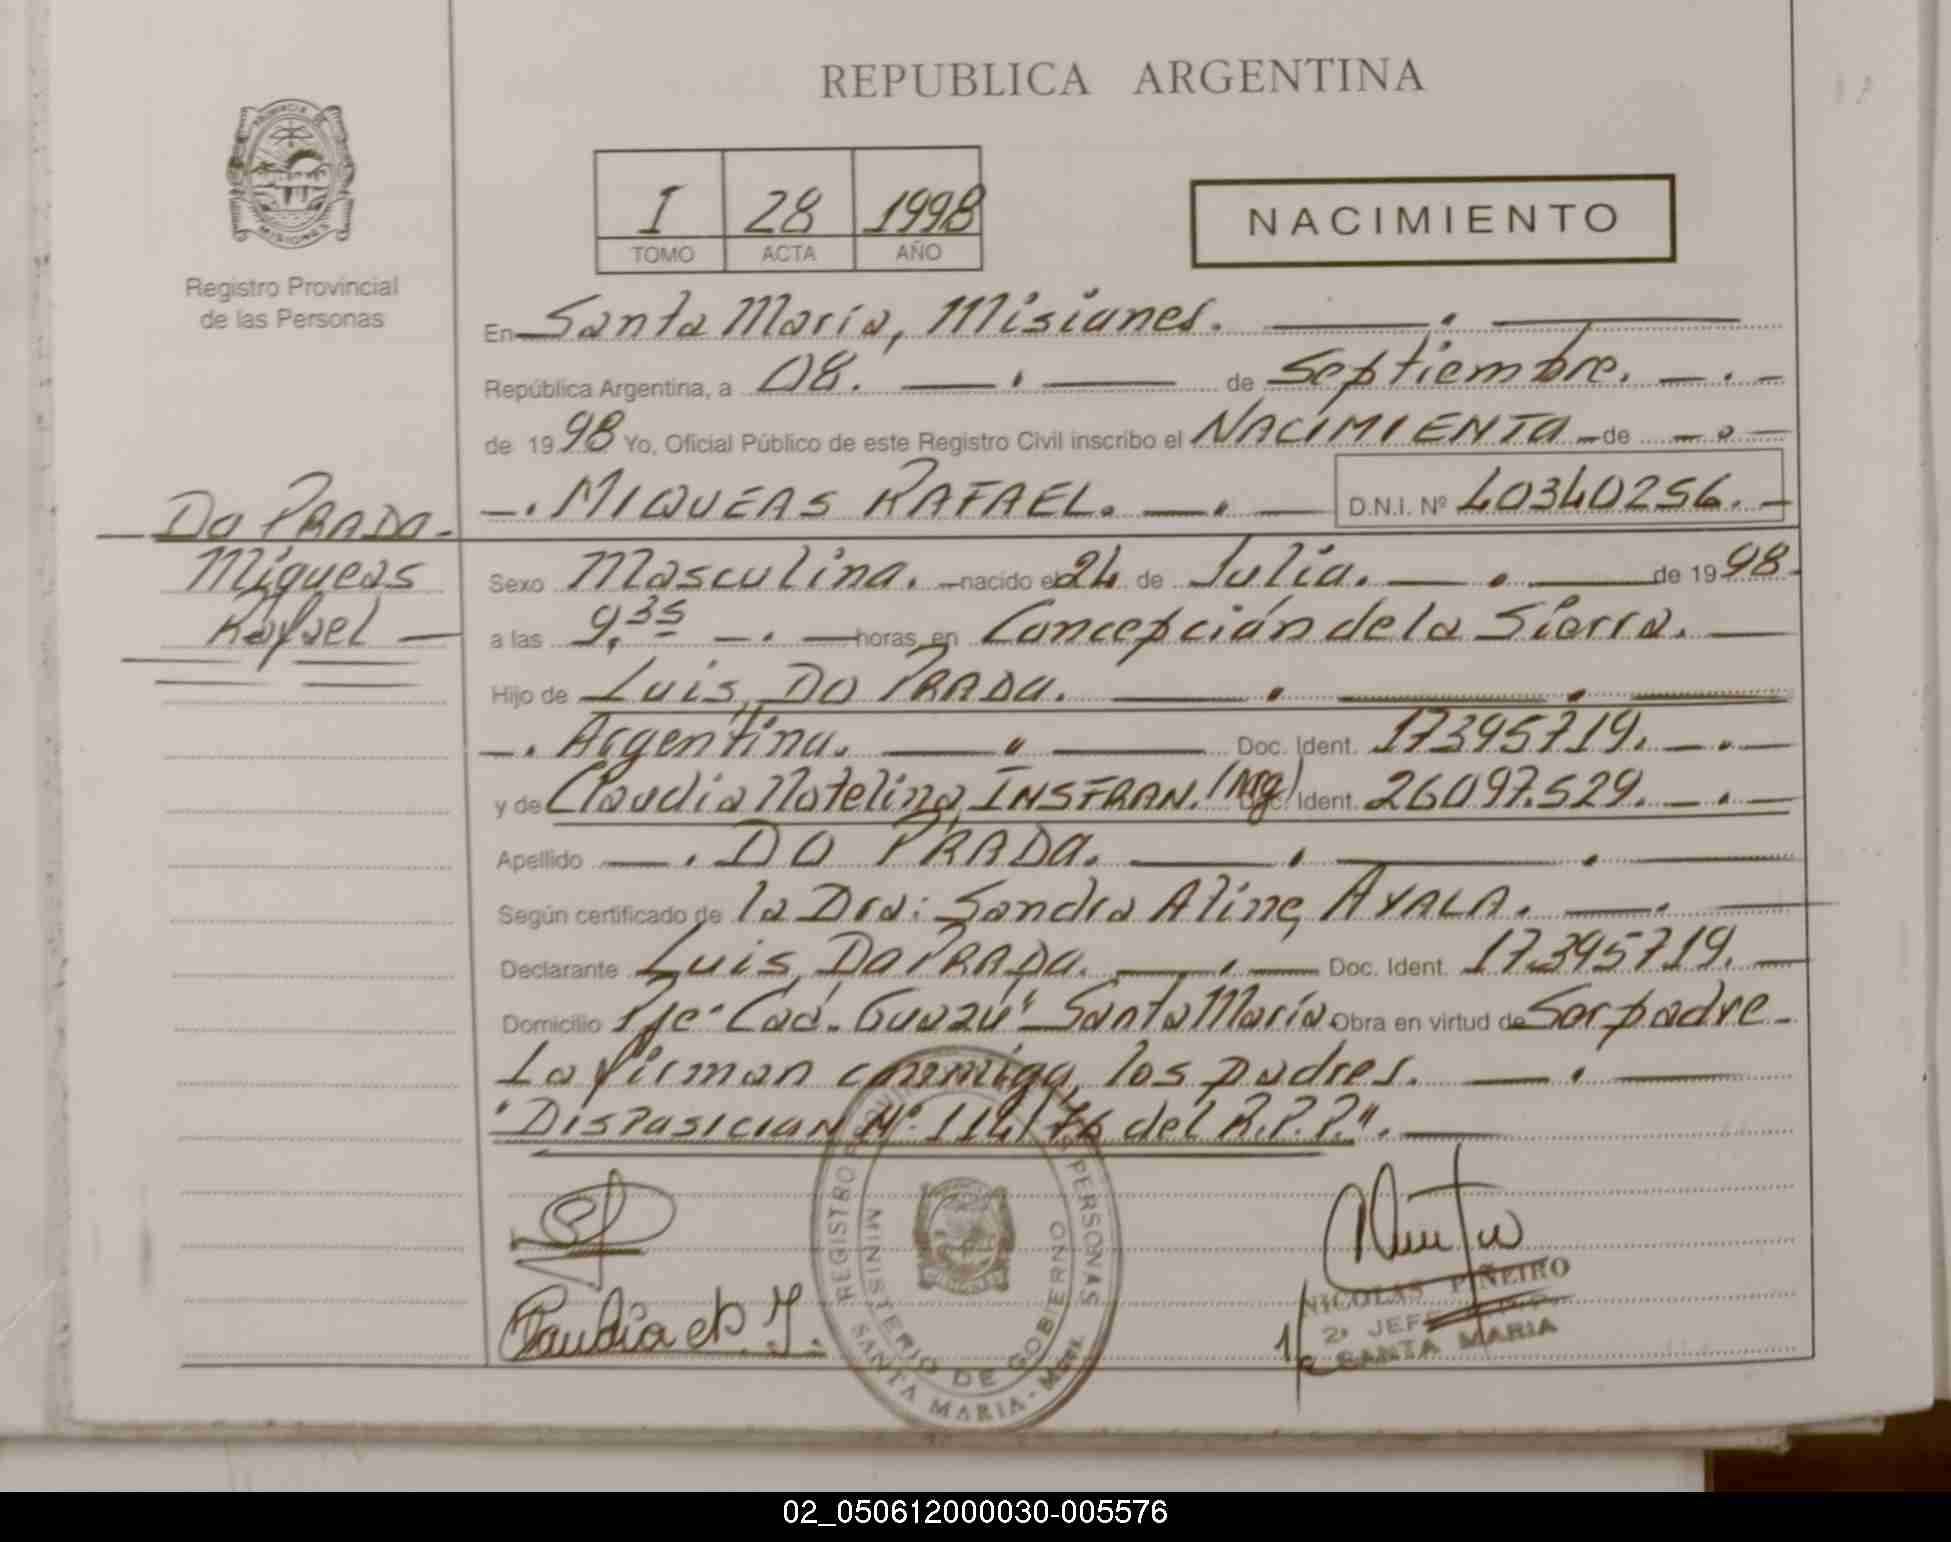 REPUBLICA ARGENTINA
PROVINCIA DE MISIONES
Registro Provincial
de las Personas
I 28 1998
TOMO ACTA AÑO
NACIMIENTO
En Santa María, Misiones.
República Argentina, a 08. de Septiembre.
de 1998 Yo, Oficial Público de este Registro Civil inscribo el NACIMIENTO de
MIQUEAS RAFAEL. D.N.I. Nº 40340256.
Do PRADO.
Miqueas
Rafael
Sexo Masculino. nacido el 24 de Julio. de 1998
a las 9,35 horas, en Concepción de la Sierra.
Hijo de Luis, DO PRADO.
Argentino. Doc. Ident. 17395719.
y de Claudia Notelina, INSFRAN. (Arg) Doc. Ident. 26097.529.
Apellido DO PRADO.
Según certificado de la Dra: Sandra Aline, AYALA.
Declarante Luis, Do PRADO. Doc. Ident. 17395719.
Domicilio Pje "Cad. Guazú" Santa María Obra en virtud de Ser padre
La firman conmigo, los padres.
"DISPOSICION Nº 114/76 del R.P.P.".
Claudia
REGISTRO PROVINCIAL DE LAS PERSONAS
MINISTERIO DE GOBIERNO
SANTA MARIA - Mnes.
NICOLAS PIÑEIRO
2º JEFE
SANTA MARIA
02_050612000030-005576